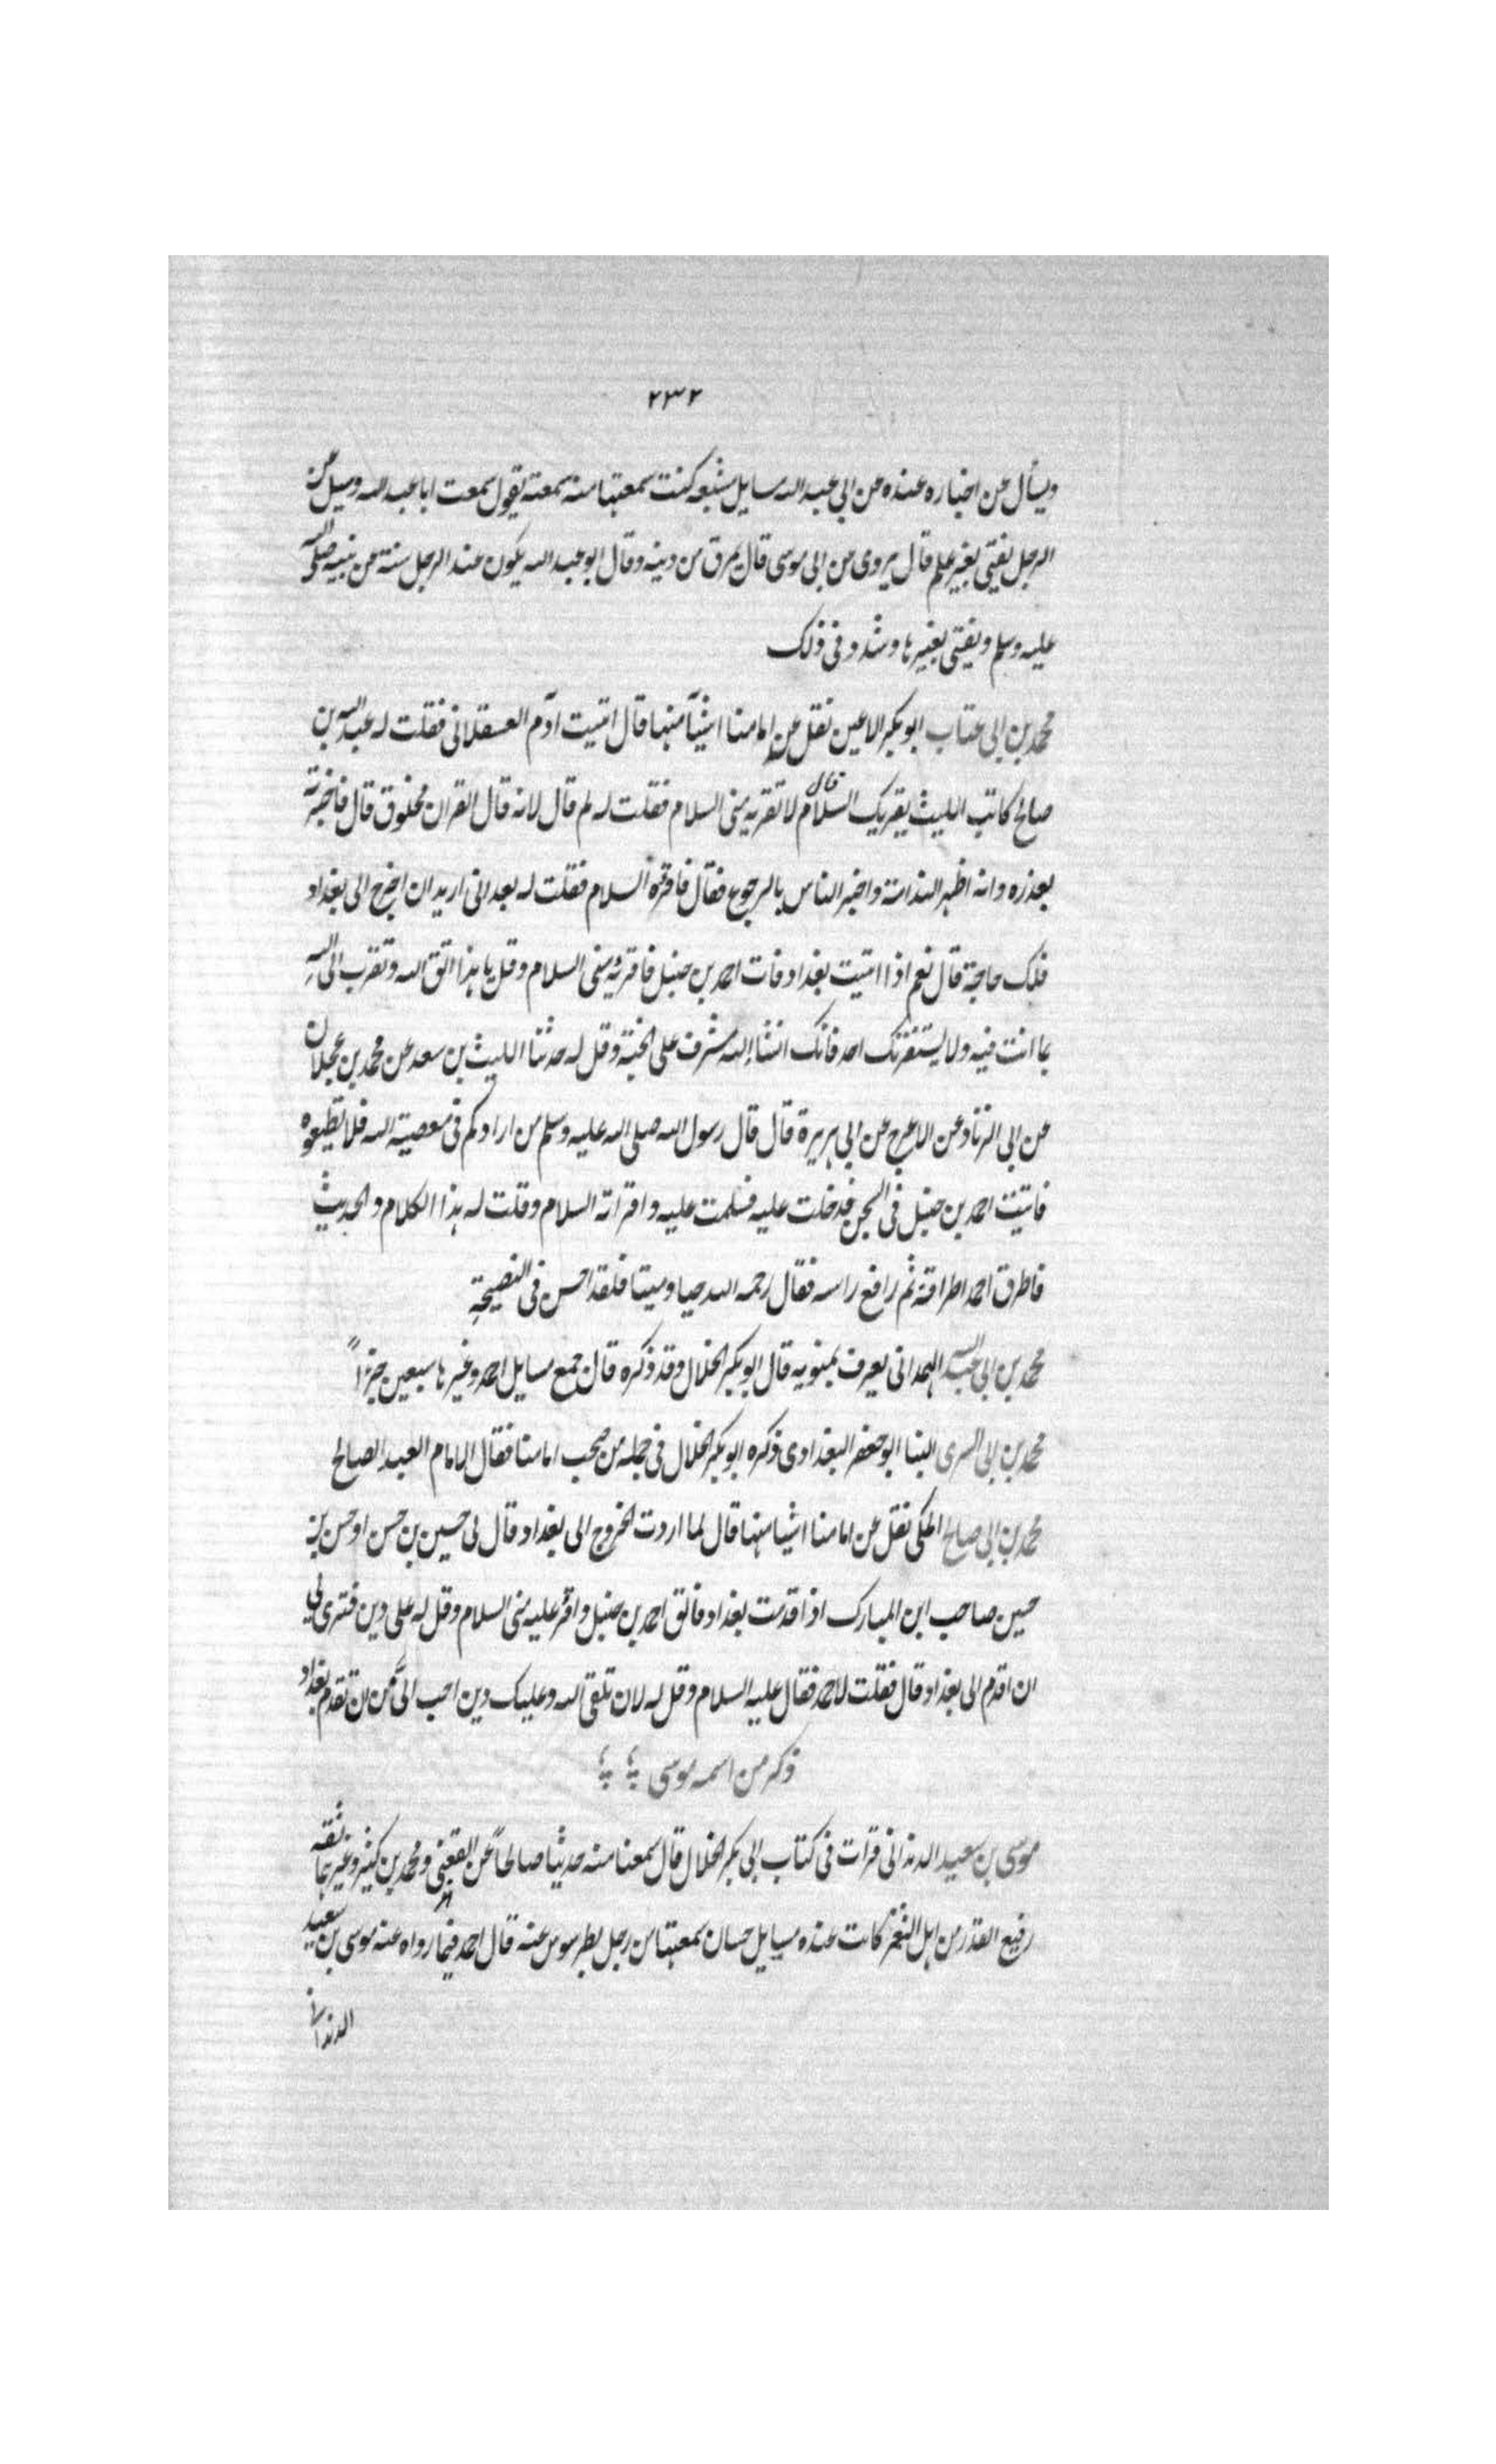 ٢٣٢
ويسأل عن اخباره عنده عن ابى عبد الله مسايل مشبعه كنت سمعتها منه سمعته يقول سمعت ابا عبد الله وسيل عن
الرجل يفتى بغير علم قال يروى عن ابى موسى قال يمرق من دينه وقال ابو عبد الله يكون عند الرجل سنة عن نبيه صلى الله
عليه وسلم ويفتى بغيرها وشدد فى ذلك
محمد بن ابى عتاب ابو بكر الاعين نقل عن امامنا اشيآ منها قال اتيت آدم العسقلانى فقلت له عبد الله بن
صالح كاتب الليث يقريك السلام قال لا تقريه منى السلام فقلت له لم قال لانه قال القران مخلوق قال فاخبرته
بعذره وانه اظهر الندامة واخبر الناس بالرجوع فقال فاقره السلام فقلت له بعد انى اريد ان اخرج الى بغداد
فلك حاجة قال نعم اذا اتيت بغداد فات احمد بن حنبل فاقريه منى السلام وقل يا هذا اتق الله وتقرب الى الله
بما انت فيه ولا يستفزنك احد فانك انشا الله مشرف على الجنة وقل له حدثنا الليث بن سعد عن محمد بن عجلان
عن ابى الزناد عن الاعرج عن ابى هريرة قال قال رسول الله صلى الله عليه وسلم من ارادكم فى معصية الله فلا تطيعوه
فاتيت احمد بن حنبل فى السجن فدخلت عليه فسلمت عليه واقراته السلام وقلت له هذا الكلام والحديث
فاطرق احمد اطراقة ثم رافع راسه فقال رحمه الله حيا وميتا فلقد احسن فى النصيحة
محمد بن ابى عبد الله الهمدانى يعرف بمتويه قال ابو بكر الخلال وقد ذكره قال جمع مسايل احمد وغيرها سبعين جزءاً
محمد بن ابى السرى البنا ابو جعفر البغدادى ذكره ابو بكر الخلال فى جمله من صحب امامنا فقال الامام العبد الصالح
محمد بن ابى صالح المكى نقل عن امامنا اشيا منها قال لما اردت الخروج الى بغداد قال لى حسين بن حسن او حسن بن
حسين صاحب ابن المبارك اذا قدمت بغداد فالق احمد بن حنبل واقر عليه منى السلام وقل له على دين فترى لى
ان اقدم الى بغداد قال فقلت لاحمد فقال عليه السلام وقل له لان تلقى الله وعليك دين احب الىّ من ان تقدم بغداد
ذكر من اسمه موسى
موسى بن سعيد الدندانى قرات فى كتاب ابى بكر الخلال قال سمعنا منه حديثا صالحاً عن القعنبى ومحمد بن كثير وغيرهما ثقه
رفيع القدر من اهل الثغر كانت عنده مسايل حسان سمعتها من رجل بطرسوس عنه قال احمد فيما رواه عنه موسى بن سعيد
الدندانى